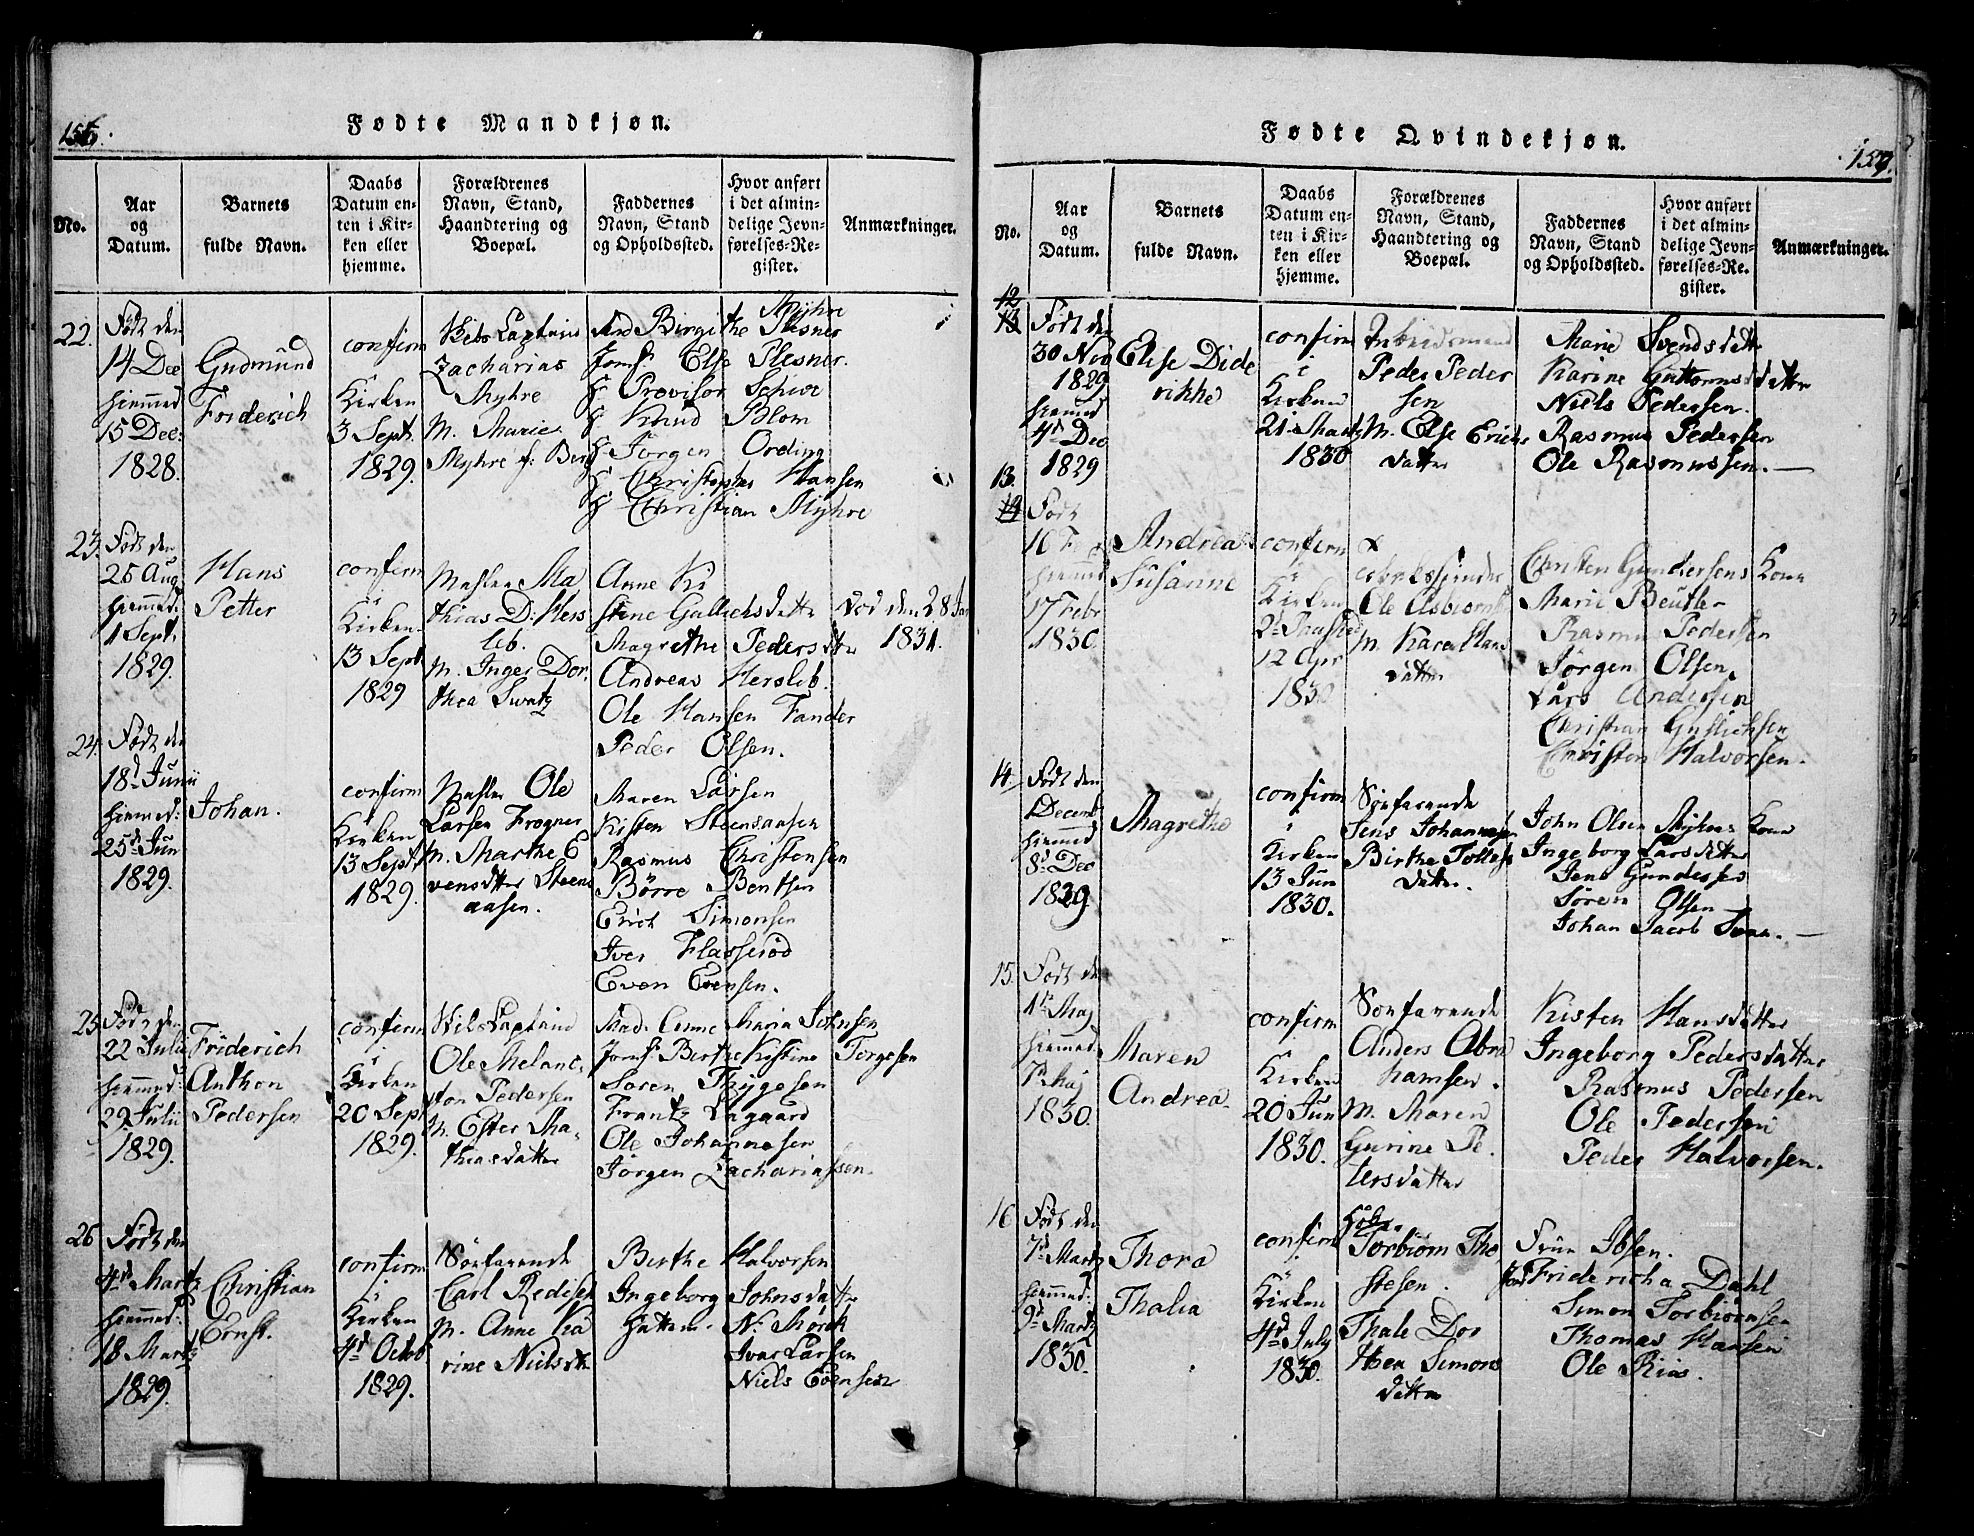 156.
Fødte Mandkjøn.
No.
Aar
og
Datum.
Barnets
fulde Navn.
Daabs
Datum en-
ten i Kir-
ken eller
hjemme.
Forældrenes
Navn, Stand,
Haandtering og
Boepæl.
Faddernes
Navn, Stand
og Opholdssted.
Hvor anført
i det almin-
delige Jevn-
førelses-Re-
gister.
Anmærkninger.
22.
Født den
14 Dec
hiemmed
15 Dec:
1828.
Gudmund
Friderich
confirm
i
Kirken
3 Sept.
1829.
Zacharias
Myhre
M. Marie
Myhre f: Berg
Mad Birgithe Myhre
Plesner
Jomf. Else Plesner.
H Provisor Schive
H Knud Blom
H Jørgen Ording
H Christopher Hansen
H Christian Myhre
23.
Født den
25 Aug
hiemmed.
1 Sept.
1829.
Hans
Petter
confirm
i
Kirken.
13 Sept
1829
Mathias D: Hers
leb.
M. Inger Dor,
thea Swatz
Anne Ki
stine Gullichsdatter
Magrethe Pedersdtr
Andreas Hersleb.
Ole Hansen Fander
Peder Olsen.
Død den 28 Jan
1831.
24.
Født den
18d Junii
hiemmed:
25d Jun
1829.
Johan.
confirm
i
Kirken
13 Sept
1829.
Ole
Larsen Frogner
M. Marthe E
vensdtter Steens
aasen.
Maren Larsen
Kisten Steensaasen
Rasmus Christensen
Börre Bentsen
Erich Simonsen
Iver Flasseröd
Even Evensen.
25
Født den
22 Julii
hiemmed:
29 Julii
1829.
Friderich
Anthon
Pedersen
confirm
i
Kirken
20 Sept
1829.
Ole Melanc,
ton Pedersen
M. Ester Ma,
thiasdatter
Mad. Anne Maria Johnsen
Jomf. Berthe Kistine Torgesen
Søren Thygesen
Frantz Lagaard
Ole Johannesen
Jørgen Zachariassen.
26
Født den
4d Martz
hiemmed:
18 Martz
1829.
Christian
Ernst.
confirm
i
Kirken
4d Octob
1829.
Sönfarende
Carl Redisch
M. Anne Ka
rine Nielsdtr
Berthe Halvorsen
Ingeborg Johnsdatter
N: Mørch
Ivar Larsen
Niels Evensen
Fødte Qvindekjøn.
157.
No.
Aar
og
Datum.
Barnets
fulde Navn.
Daabs
Datum en-
ten i Kir-
ken eller
hjemme.
Forældrenes
Navn, Stand,
Haandtering og
Boepæl.
Faddernes
Navn, Stand
og Opholdssted.
Hvor anført
i det almin-
delige Jevn-
førelses-Re-
gister.
Anmærkninger.
12
13
Født den
30 Nov
1829
hiemmed
4d Dec
1829
Else Dide
rikke
confirm
i
Kirken
21 Martz
1830
Peder Peder
sen
M. Else Erichs
datter
Marie Svendsdatter
Karine Guttormsdatter
Niels Pedersen.
Rasmus Pedersen
Ole Rasmussen.
13.
14
Født
hiemmed
17 Febr
1830.
Andrea
Susanne
confirm
i
Kirken
12 Apr
1830
Ole Asbiörns
M Karen Hans
datter
Carsten Gundersens Kone
Marie Beutler
Rasmus Pedersen
Jørgen Olsen
Lars Andersen
Christian Gullichsen
Christen Halvorsen.
14.
Født den
Decemb
hiemmed
8d Dec
1829
Magrethe
confirm
i
Kirken
13 Jun
1830.
Sönfarende
Jens Johannesen
Birthe Tollefs
datter.
John Olsen Myhres Kone
Ingeborg Larsdatter
Jens Gundersen
Sören Olsen
Johan Jacob Svan.
15.
Født den
1d Maj
hiemmed
7d Maj
1830.
Maren
Andrea.
confirm
i
Kirken
20 Jun
1830.
Sönfarende
Anders Abra
hamsen.
M. Maren
Gurine Pe,
tersdatter
Kisten Hansdatter
Ingeborg Pedersdatter
Rasmus Pedersen
Ole Pedersen
Peder Halvorsen.
16
Født den
7d Martz
hiemmed:
9d Martz
1830.
Thora
Thalia
confirm
i
Kirken
4d July
1830.
Torbiörn Tho
stesen.
Thale Dor
thea Simons
datter
Frue Ibsen.
Jomf Friderica Dahl
Simon Torbiörnsen
Thomas Hansen
Ole Riis.